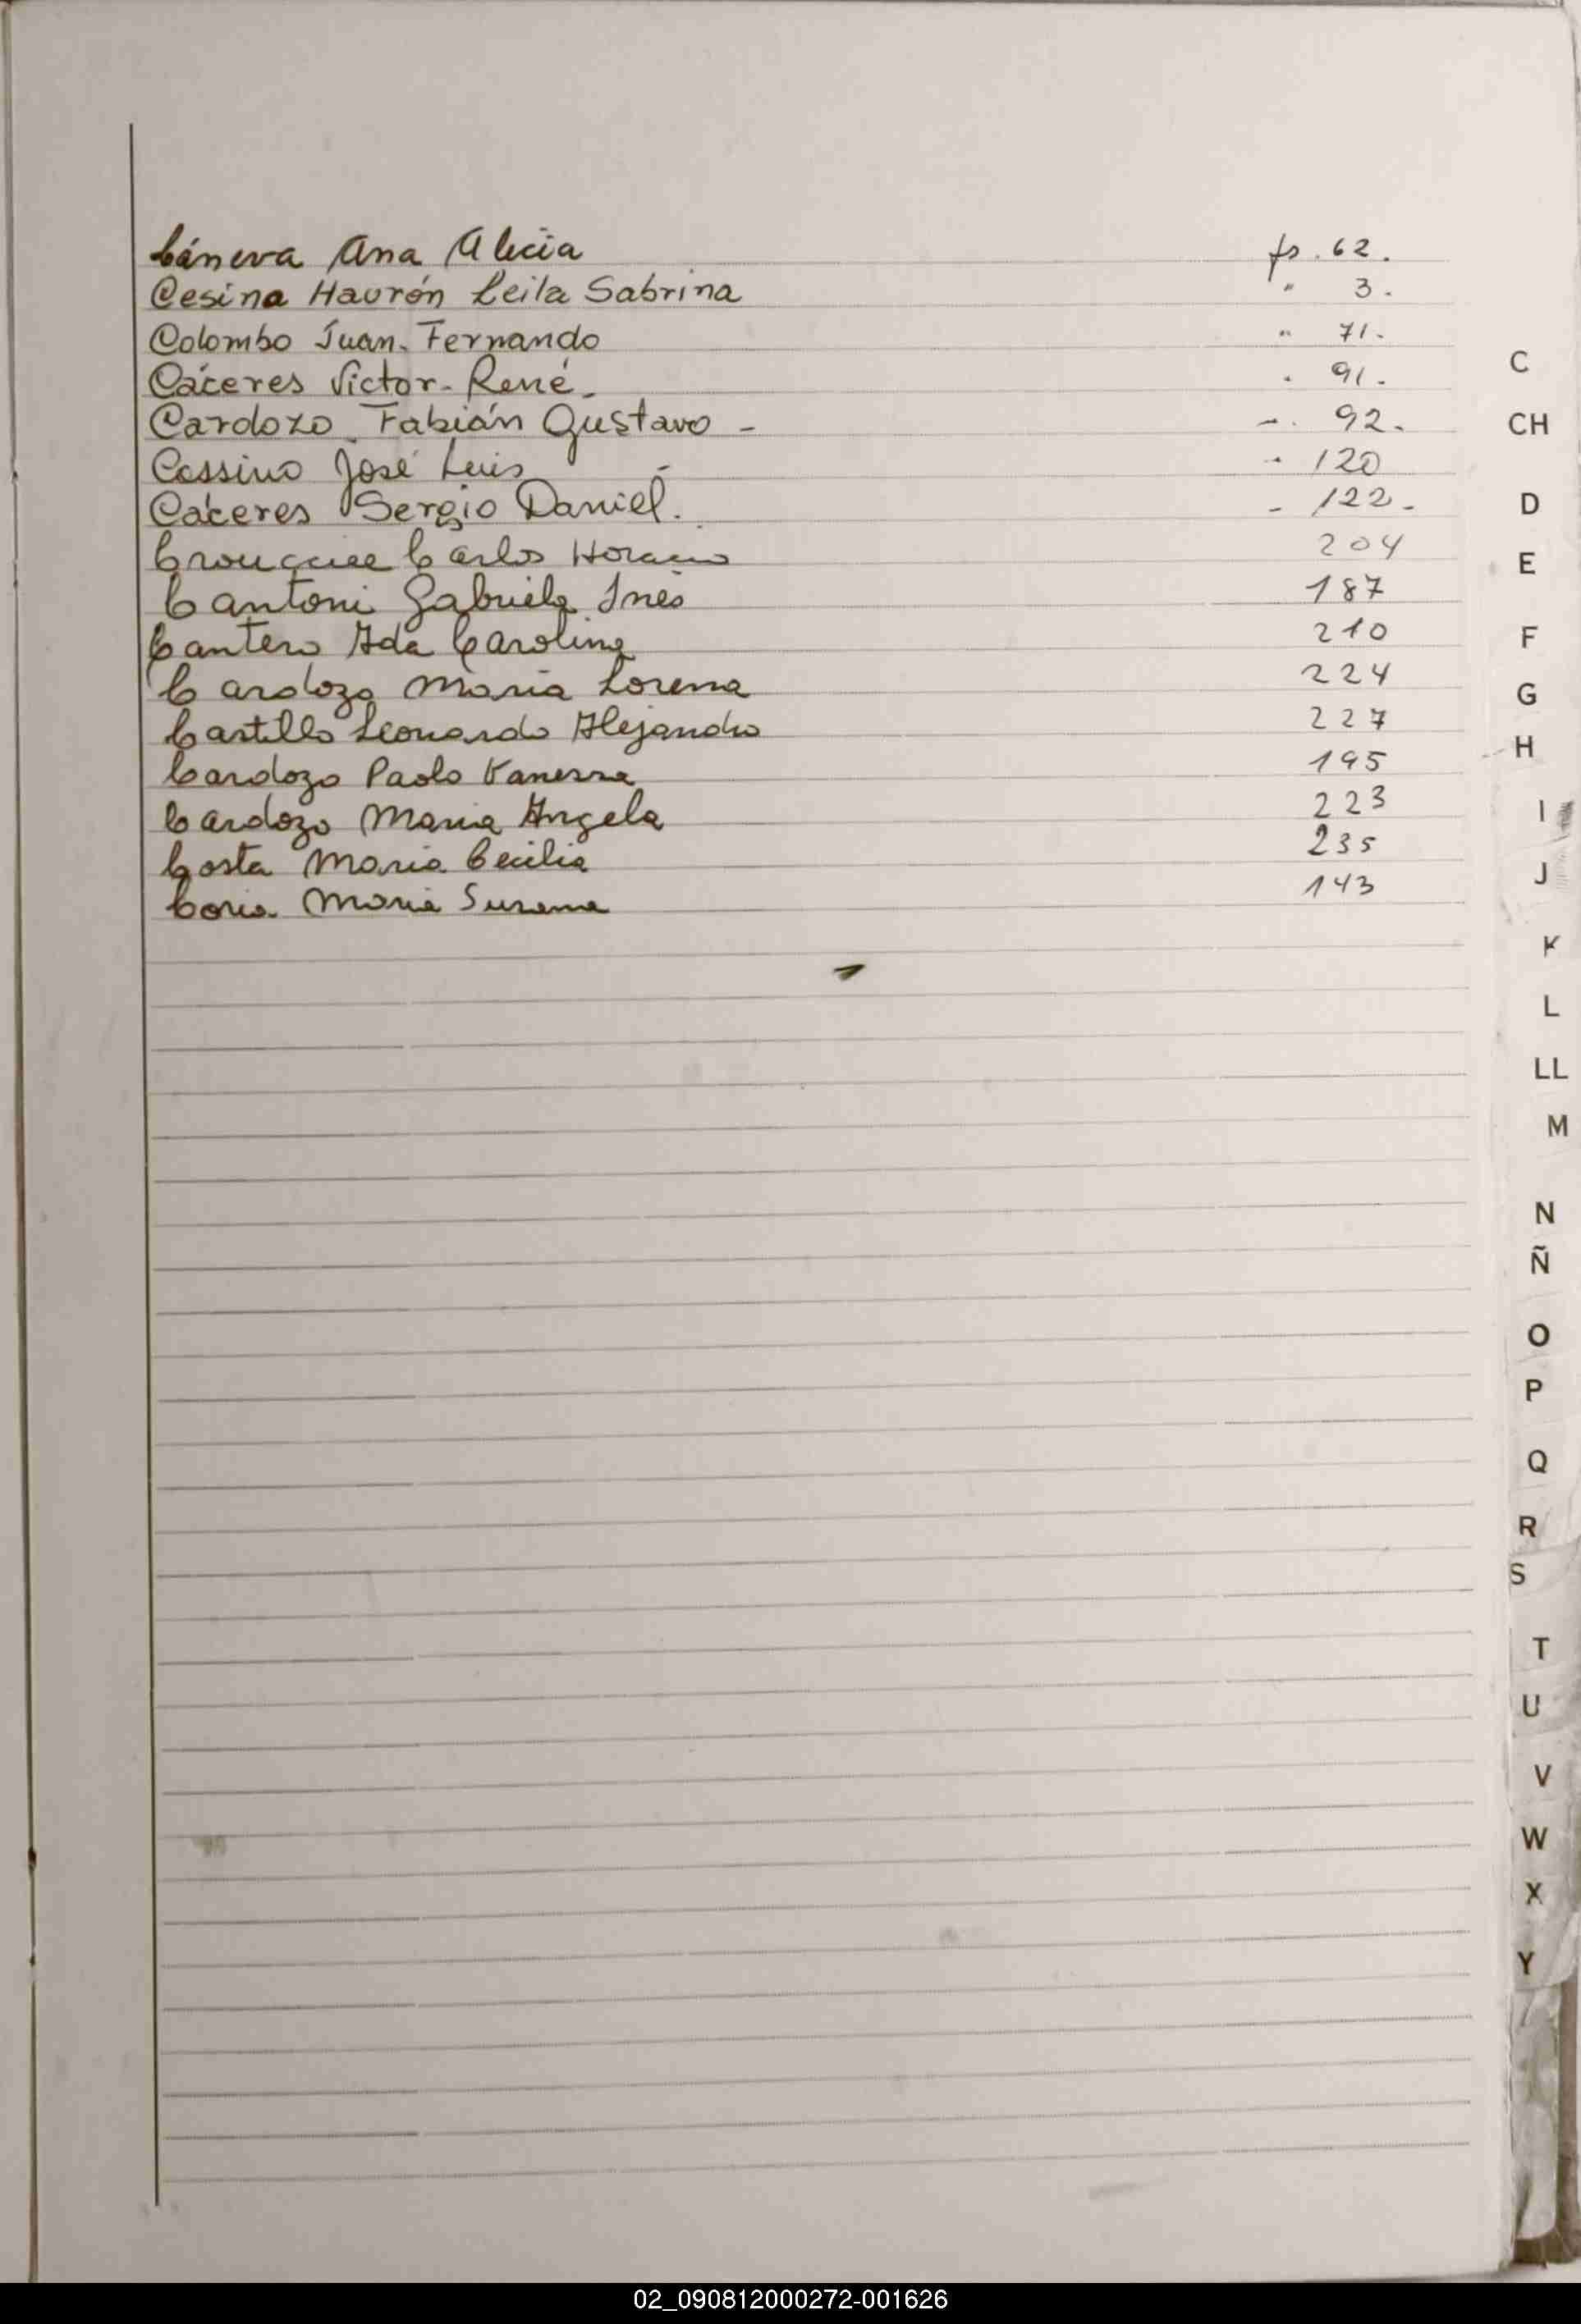 Cáneva Ana Alicia fs. 62.
Cesina Haurón Leila Sabrina " 3.
Colombo Juan. Fernando " 71.
Cáceres Victor-René. " 91.
Cardozo Fabián Gustavo - " 92.
Cossino José Luis - 120
Cáceres Sergio Daniel. - 122.
Carlos Horacio 204
Cantoni Gabriela Inés 187
Cantero Ida Carolina 210
Cardozo Maria Lorena 224
Castillo Leonardo Alejandro 227
Cardozo Paola Vanessa 195
Cardozo Maria Angela 223
Costa Maria Cecilia 235
Coria Maria Susana 143
C
CH
D
E
F
G
H
I
J
K
L
LL
M
N
Ñ
O
P
Q
R
S
T
U
V
W
X
Y
02_090812000272-001626